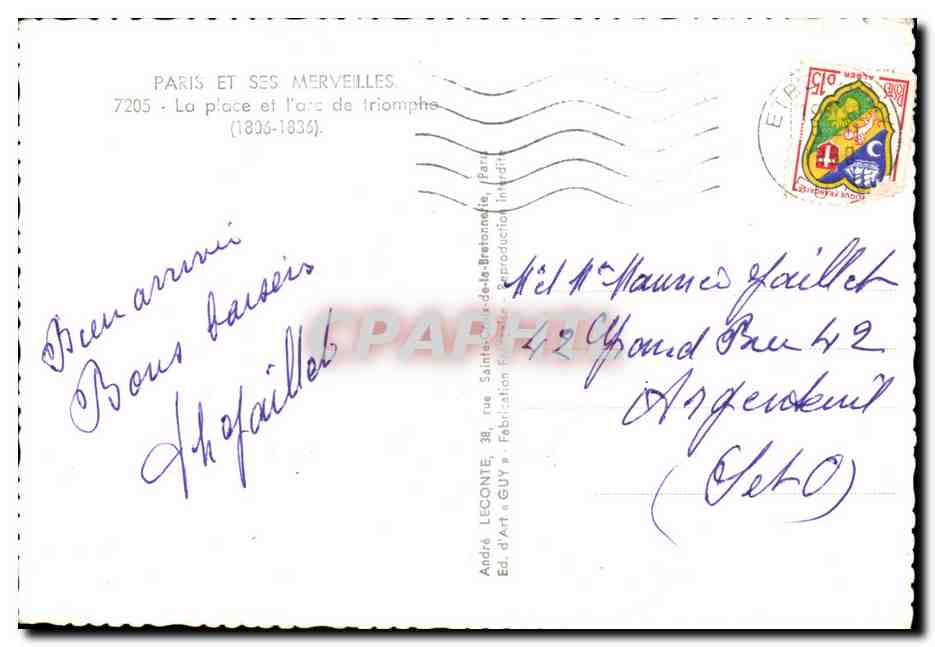 PARIS ET SES MERVEILLES.
7205 - La place et l'arc de triomphe
(1806-1836).
Bien arrivés
Bons baisers
Jaillet
André LECONTE, 38, rue Sainte-Croix-de-la-Bretonnerie, Paris
Ed. d'Art « GUY » - Fabrication Française - Reproduction interdite
15F
POSTES
ALGER
CPAPHIL
M et Me Maurice Jaillet
42 Grand Rue 42
Argenteuil
(S et O)